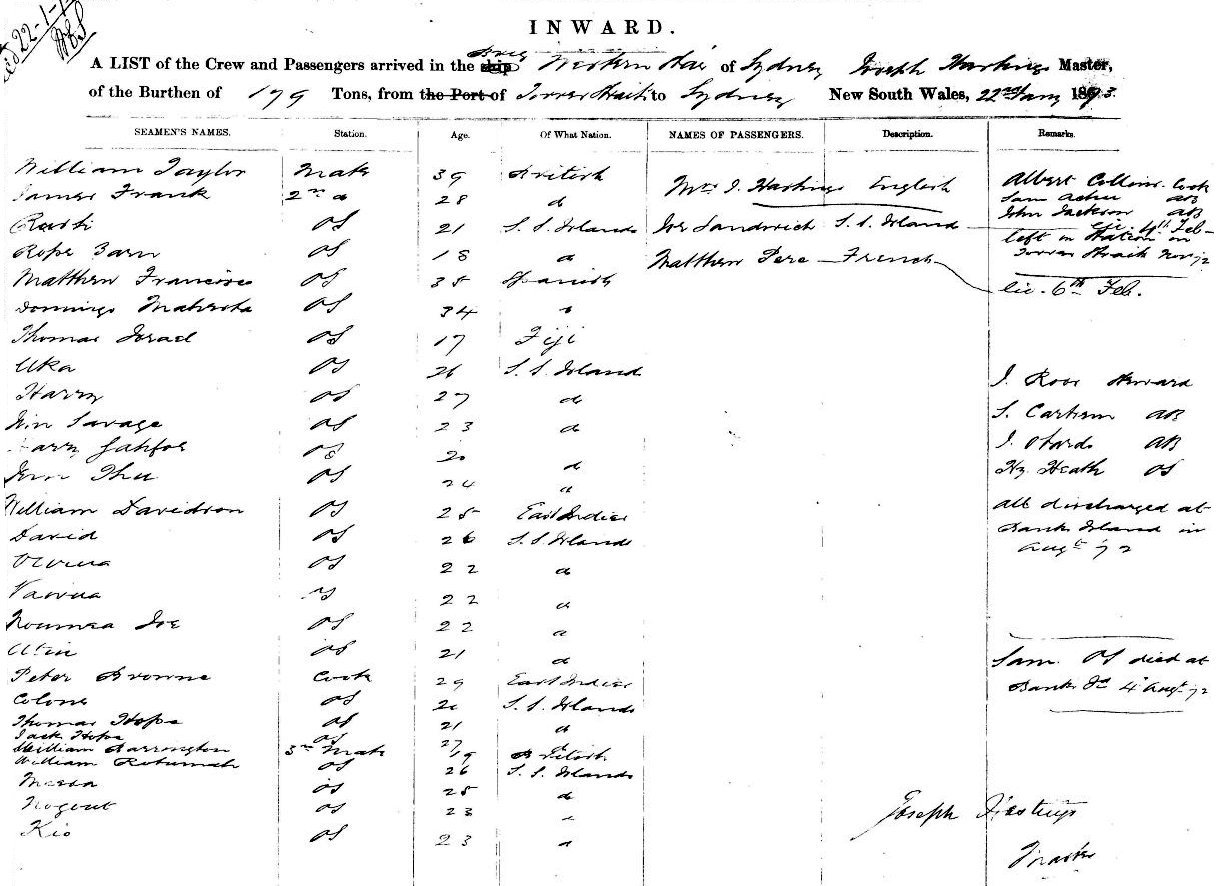 22-1-
INWARD.
A LIST of the Crew and Passengers arrived in the ship Brig Western Star of Sydney Joseph Hastings Master,
of the Burthen of 179 Tons, from the Port of Torres Straits to Sydney New South Wales, 22nd Jany 1873.
SEAMEN'S NAMES. Station. Age. Of What Nation. NAMES OF PASSENGERS. Description. Remarks.
William Taylor Mate 39 British Mrs J. Hastings English Albert Collins. Cook
James Frank 2nd do 28 do Sam AB
OS 21 S. S. Islands Joe Sandwich S. S. Island John Jackson AB
4th Feb
Rope Yarn OS 18 do Matthew French left on Station in
Torres Straits Nov 72
Matthew Francisco OS 35 Spanish lic. 6th Feb.
Domingo OS 34 "
Thomas Israel OS 17 Fiji
Uka OS 26 S. S. Island J. Steward
Harry OS 27 do
Jim Savage OS 23 do S. AB
OS 20 do J. AB
OS 24 do Hy. Heath OS
William Davidson OS 25 East Indies all discharged at
David OS 26 S. S. Islands Banks Island in
OS 22 do Augt 72
OS 22 do
Noumea Joe OS 22 do
OS 21 do Sam OS died at
Peter Browne Cook 29 East Indies Banks Id 4 Augt 72
OS 20 S. S. Islands
Thomas Hope OS 21 do
Jack Hope OS 27 do
William Barrington 3rd Mate 19 British
William Rotumah OS 26 S. S. Islands
OS 25 do
OS 23 "
Kio OS 23 do
Joseph Hastings
Master